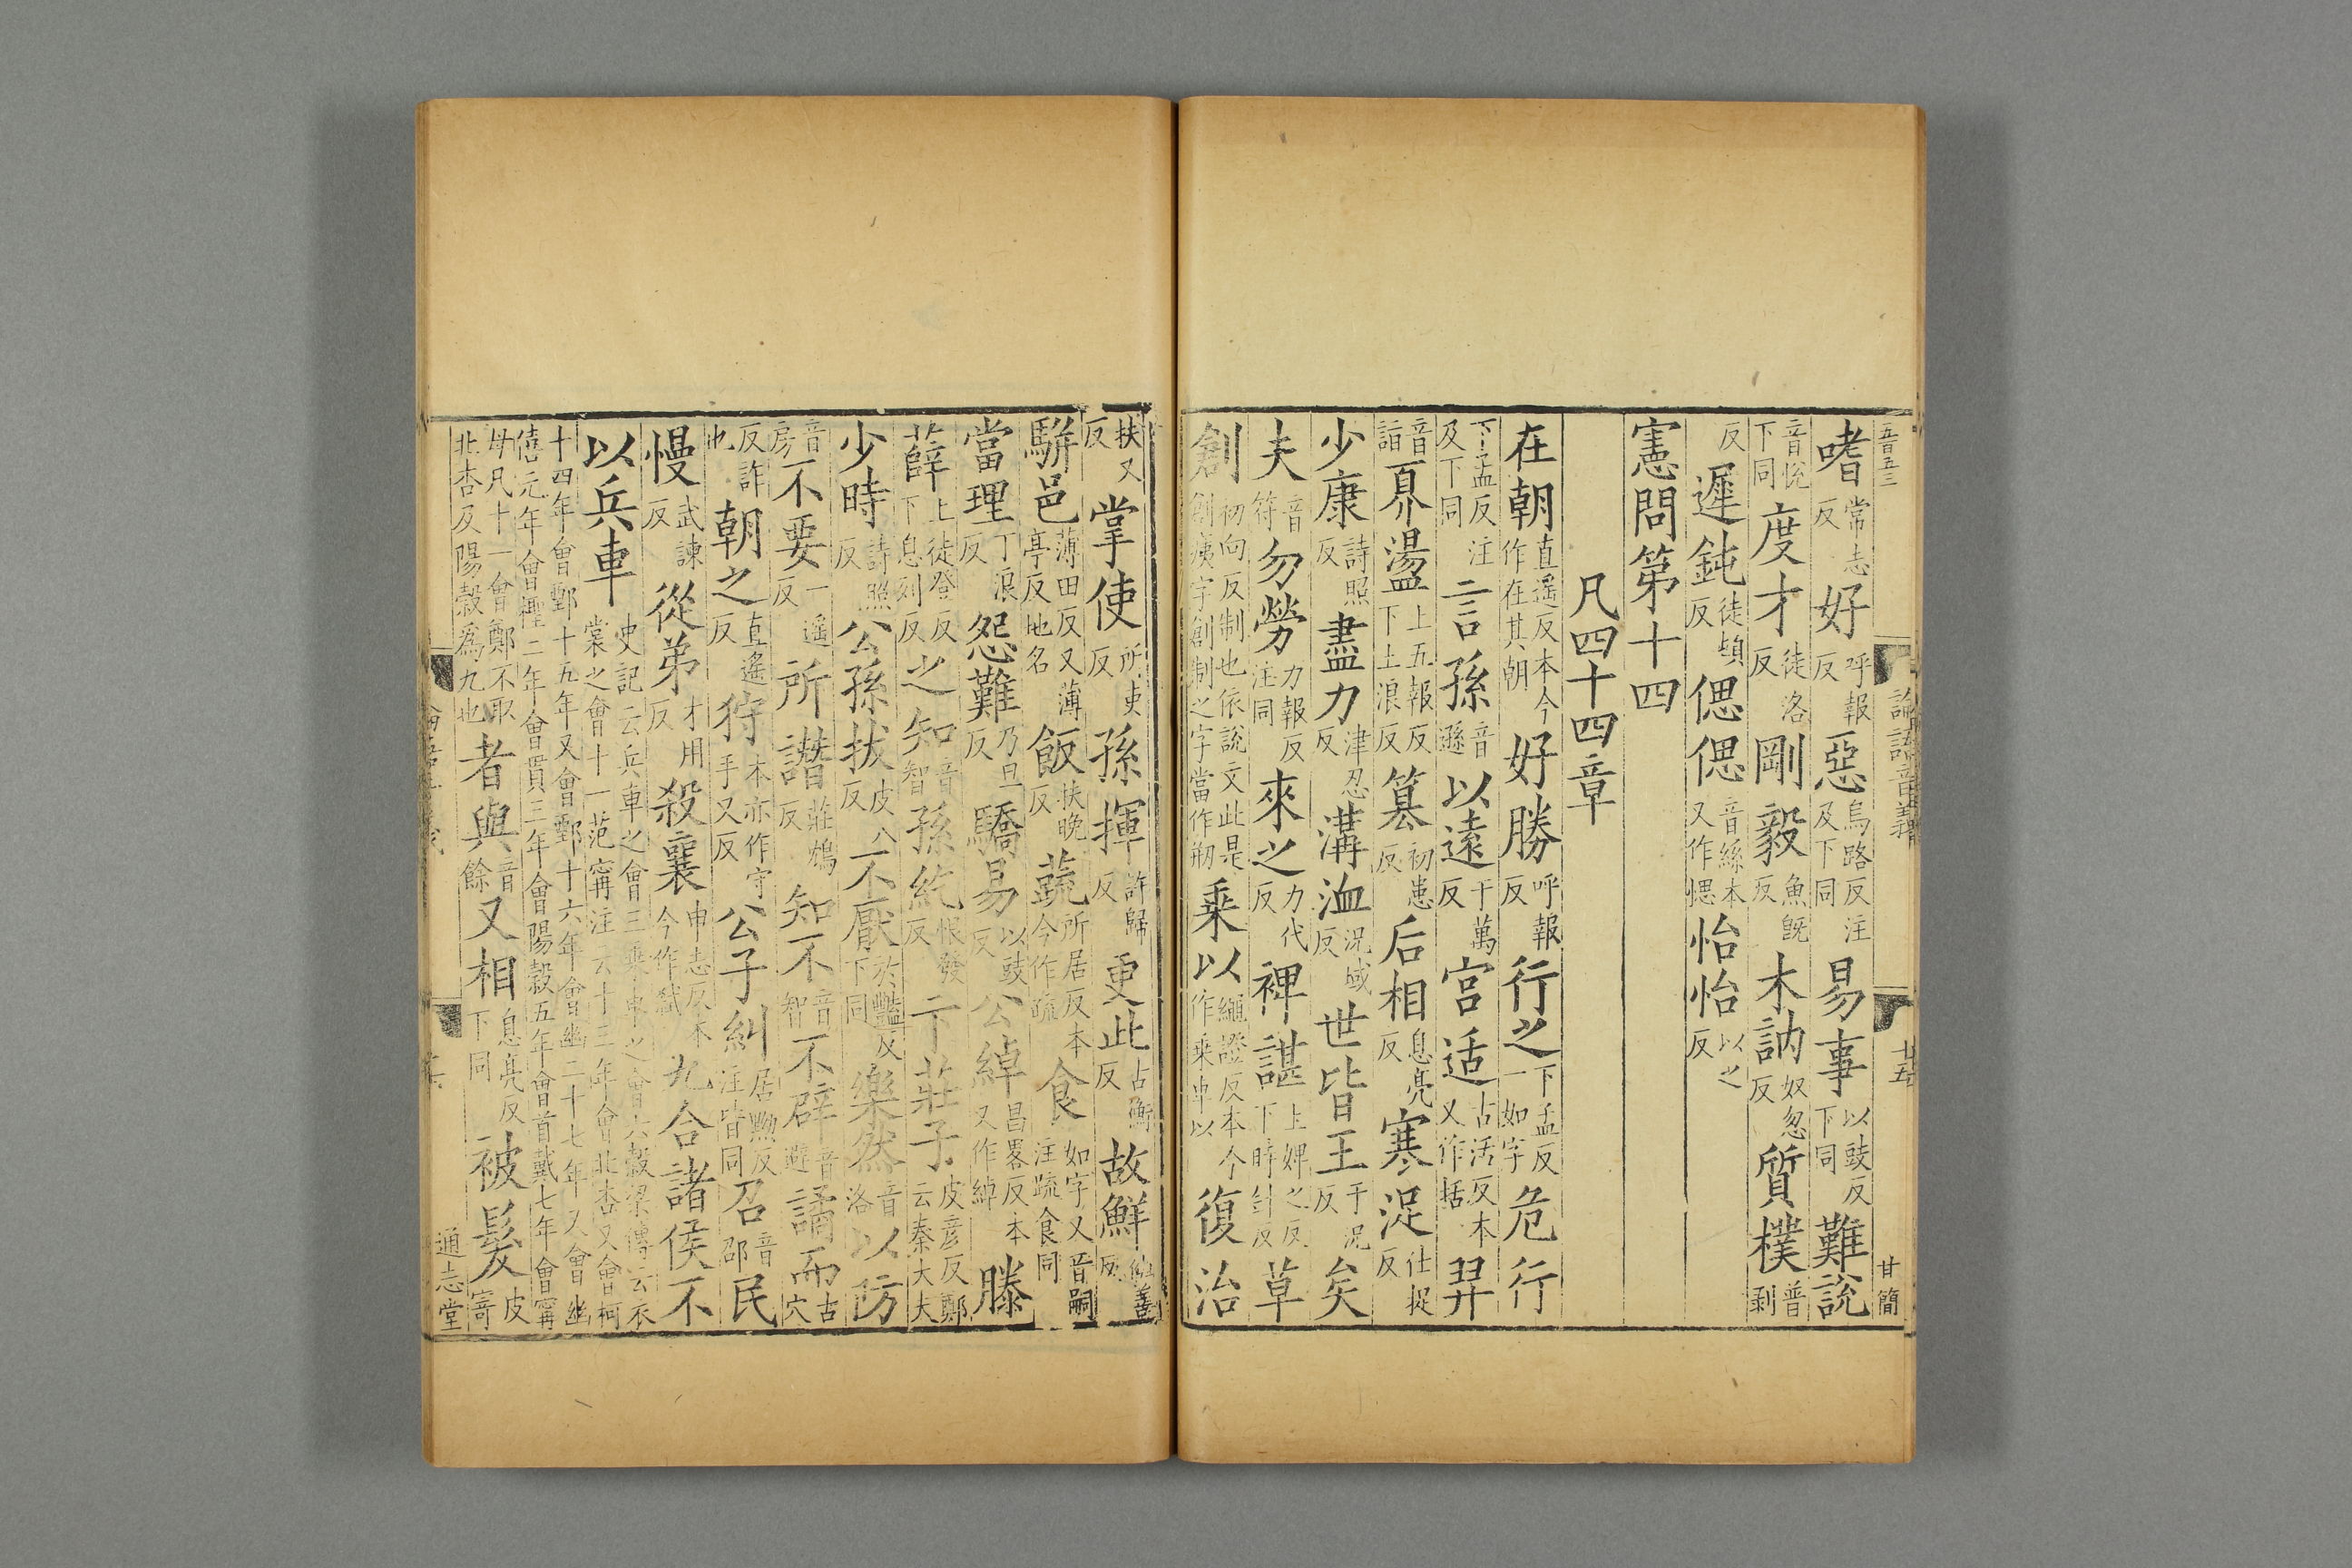 五百五三 論語音義 廿五 甘簡
嗜常志反好呼報反惡烏路反注及下同易事以豉反下同難說
音悅下同度才徒洛反剛毅魚旣反木訥奴忽反質樸普剥
反遲鈍徒頓反偲偲音絲本又作愢怡怡以之反
憲問第十四
凡四十四章
在朝直遥反本今作在其朝好勝呼報反行之下孟反一如字危行
下孟反注及下同言孫音遜以遠于萬反宫适古活反本又作括羿
音詣奡盪上五報反下土浪反篡初患反后相息亮反寒浞仕捉反
少康詩照反盡力津忍反溝洫況域反世皆王于況反矣
夫音符勿勞力報反注同來之力代反裨諶上婢之反下時針反草
創初向反制也依說文此是創痍字創制之字當作剏乗以繩證反本今作乗車以復治
扶又反掌使所吏反孫揮許歸反更此古衡反故鮮仙善反
駢邑薄田反又薄亭反地名飯扶晚反蔬所居反本今作疏食如字又音嗣注疏食同
當理丁浪反怨難乃旦反驕易以豉反公綽昌畧反本又作繛滕
薛上徒登反下息列反之知音智孫紇恨發反卞莊子皮彦反鄭云秦大夫
少時詩照反公孫拔皮八反不厭於豔反下同樂然音洛以防
音房不要一遥反所譖莊鴆反知不音智不辟音避譎而古穴
反詐也朝之直遥反狩本亦作守手又反公子糾居黝反注皆同召音邵民
慢武諫反從弟才用反殺襄申志反本今作弑九合諸侯不
以兵車史記云兵車之會三乗車之會六穀梁傳云衣裳之會十一范甯注云十三年會北杏又會柯
十四年會鄄十五年又會鄄十六年會幽二十七年又會幽僖元年會檉二年會貫三年會陽穀五年會首戴七年會甯
母凡十一會鄭不取北杏及陽穀爲九也者與音餘又相息亮反下同被髮皮寄
通志堂